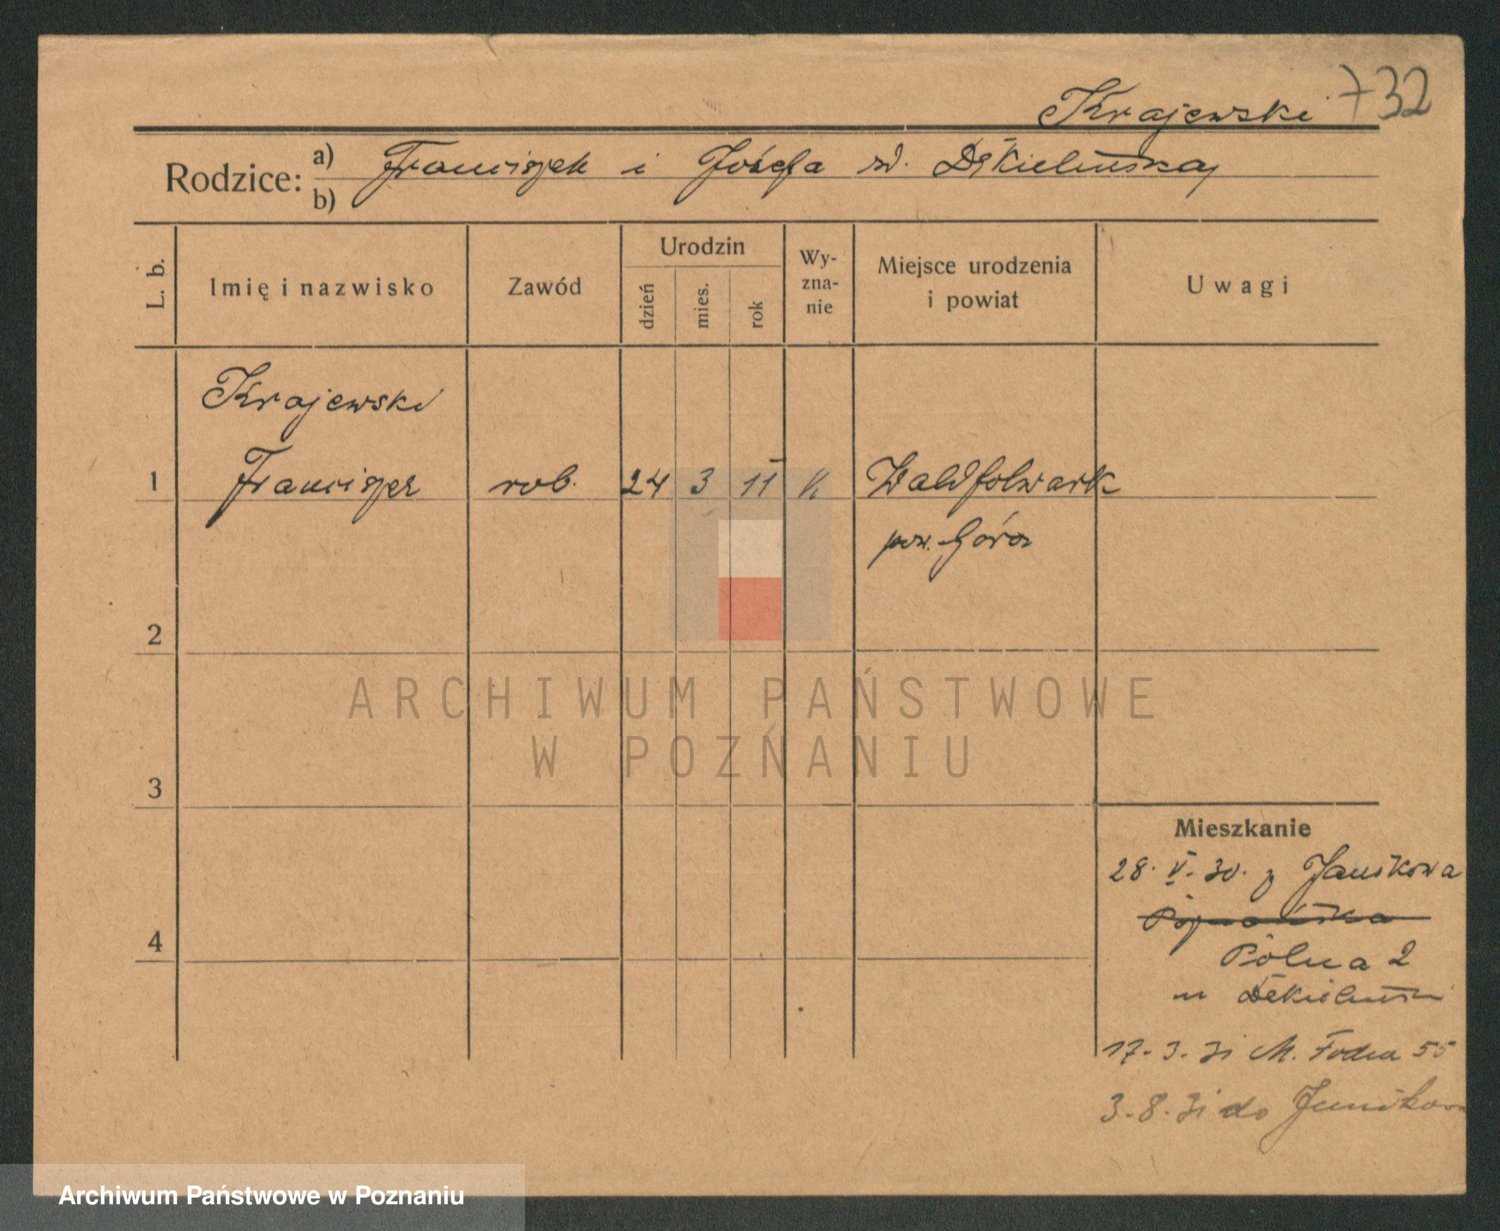 Krajewski 732
Rodzice: a) Franciszek i Józefa zd. Dękielińskaj
b)
L. b. Imię i nazwisko Zawód Urodzin dzień mies. rok Wy-zna-nie Miejsce urodzenia i powiat Uwagi
Krajewski
1 Franciszek rob. 24 3 11 k Waldfolwark
pow. Góra
2
ARCHIWUM PAŃSTWOWE
W POZNANIU
3
Mieszkanie
28. V. 30. z Janikowa
4
Polna 2
u
17. 3. 31 M. Focha 55
3. 8. 31 do Junikowa
Archiwum Państwowe w Poznaniu